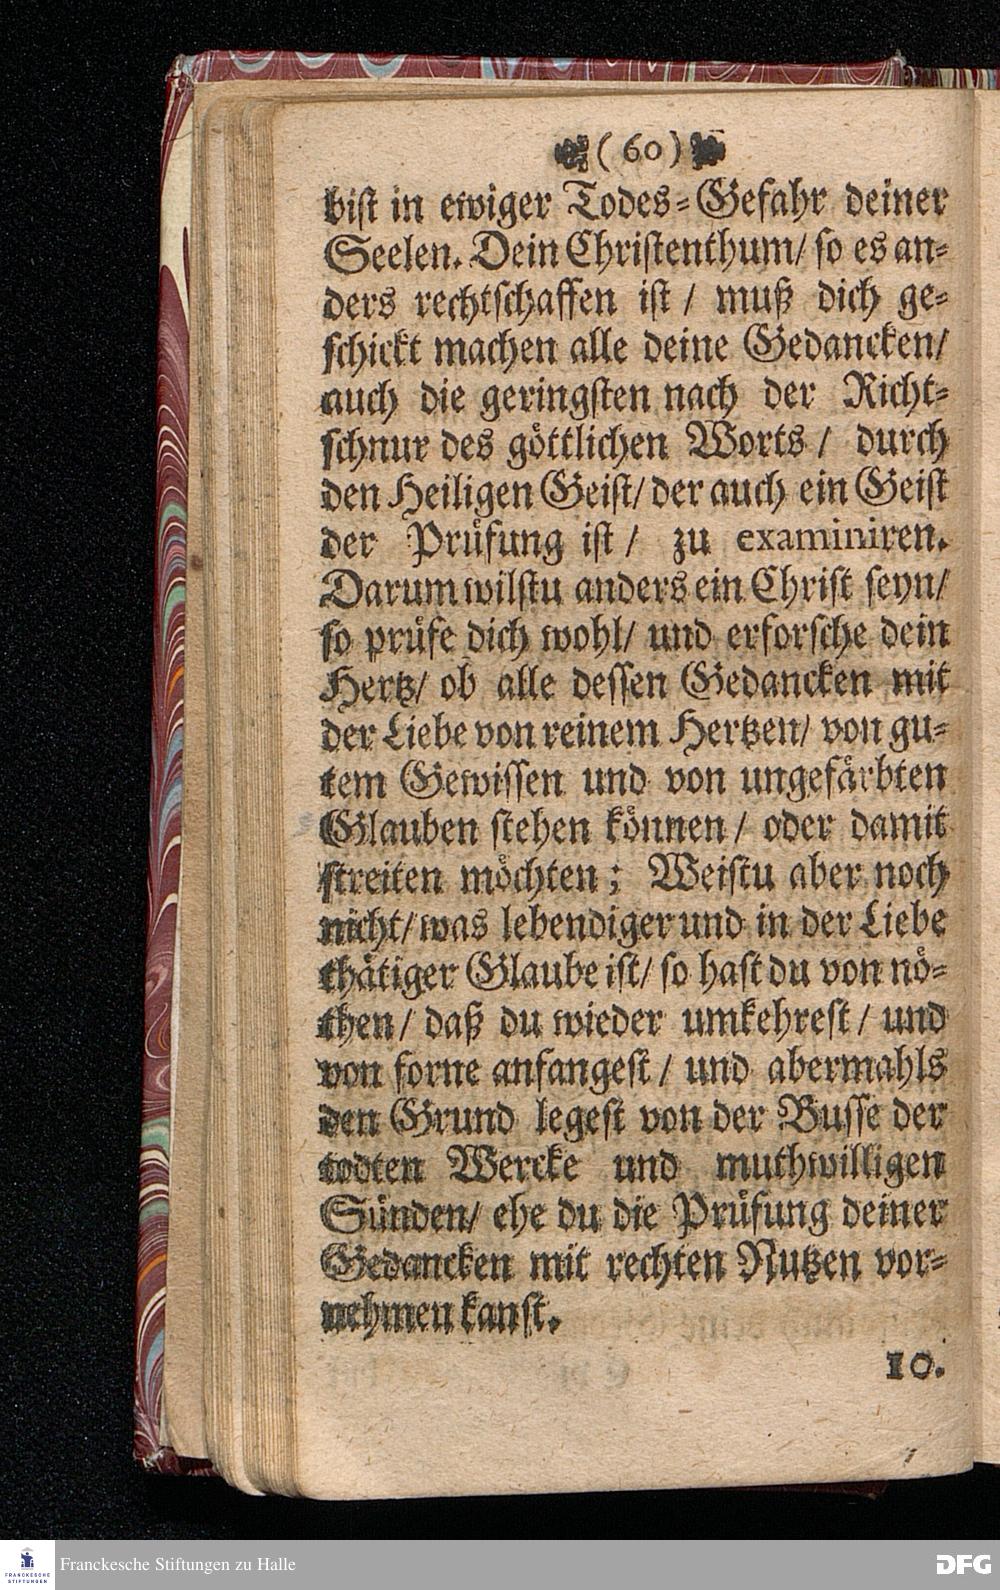 ( 60 )
bist in ewiger Todes-Gefahr deiner
Seelen. Dein Christenthum/ so es an-
ders rechtschaffen ist / muß dich ge-
schickt machen alle deine Gedancken/
auch die geringsten nach der Richt-
schnur des göttlichen Worts / durch
den Heiligen Geist/ der auch ein Geist
der Prüfung ist / zu examiniren.
Darum wilstu anders ein Christ seyn/
so prüfe dich wohl/ und erforsche dein
Hertz/ ob alle dessen Gedancken mit
der Liebe von reinem Hertzen/ von gu-
tem Gewissen und von ungefärbten
Glauben stehen können / oder damit
streiten möchten; Weistu aber noch
nicht/ was lebendiger und in der Liebe
thätiger Glaube ist/ so hast du von nö-
then / daß du wieder umkehrest / und
von forne anfangest / und abermahls
den Grund legest von der Busse der
todten Wercke und muthwilligen
Sünden/ ehe du die Prüfung deiner
Gedancken mit rechten Nutzen vor-
nehmen kanst.
10.
FRANCKESCHE STIFTUNGEN
Franckesche Stiftungen zu Halle
DFG